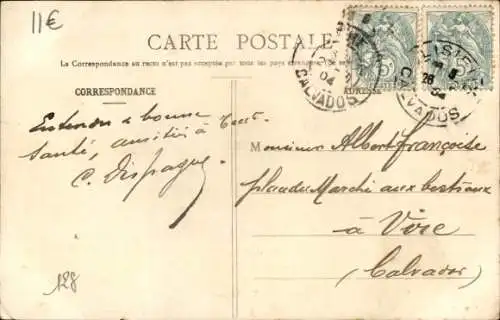 11€
CARTE POSTALE
La Correspondance au recto n'est pas acceptée par tous les pays étrangers
CORRESPONDANCE
ADRESSE
04
CALVADOS
LISIEUX
26
04
CALVADOS
bonne
santé, amitiés à
C. Dispagne
Monsieur Albert Françoise
place du Marché aux bestiaux
à Vire
(Calvados)
128